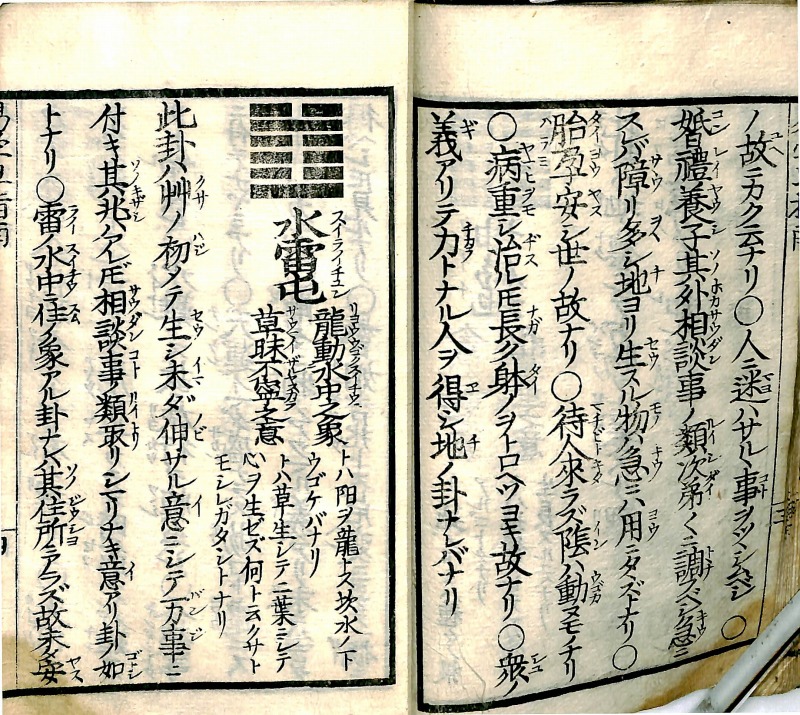 ノ故ニカク云ナリ〇人ニ迷ハサルヽ事ヲツヽシムベシ〇
婚禮養子其外相談事ノ類次第〱ニ調フベシ急ニ
スレバ障リ多シ地ヨリ生スル物ハ急ニハ用ニタヽズトナリ〇
胎孕安シ世ノ故ナリ〇待人來ラズ陰ハ動ヌモノナリ
〇病重シ治ルトモ長ク躰ノヲトロヘツヨキ故ナリ〇衆ノ
義アリテ力トナル人ヲ得シ地ノ卦ナレバナリ
水雷屯
スイライチユン
龍動水中之象
トハ陽ヲ龍トス坎水ノ下
ウゴケバナリ
草昧不寧之意
トハ草生シテ二葉ニシテ
心ヲ生ゼズ何ト云クサト
モシレガタシトナリ
此卦ハ艸ノ初メテ生シ未ダ伸サル意ニシテ万事ニ
付キ其兆ハアレトモ相談事ノ類取リシマリナキ意アリ卦ノ如
トナリ〇雷ノ水中ニ住ノ象アル卦ナレハ其住所ニアラズ故未ダ安